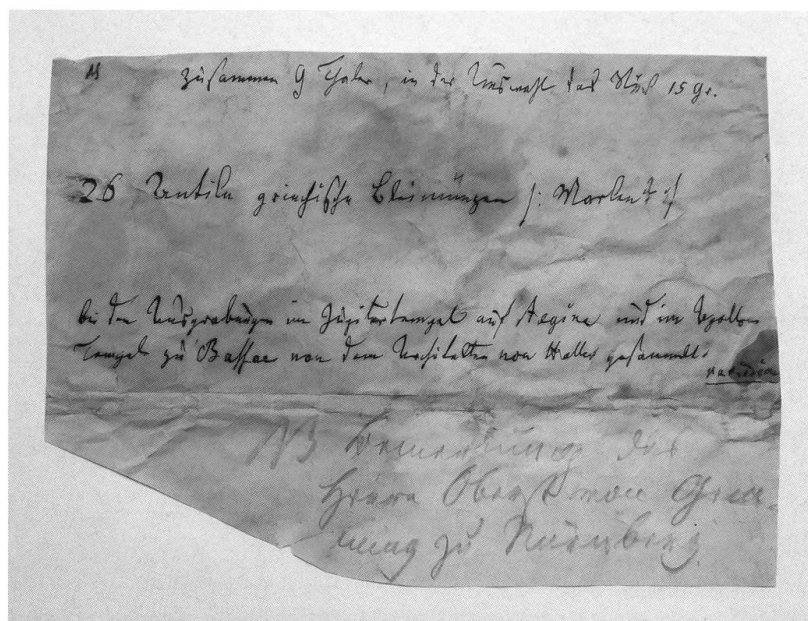 zusammen 9 Thaler, in der Auswahl das Stück 15 gr.
26 Antike griechische Bleimünzen /: Marken ? :/
bei den Ausgrabungen im Jupitertempel auf Aegina und im Apollo-
Tempel zu Bassae von dem Architekten von Haller gesammelt.
NB Bemerkung des
Herrn Oberst von Gem-
ming zu Nürnberg.